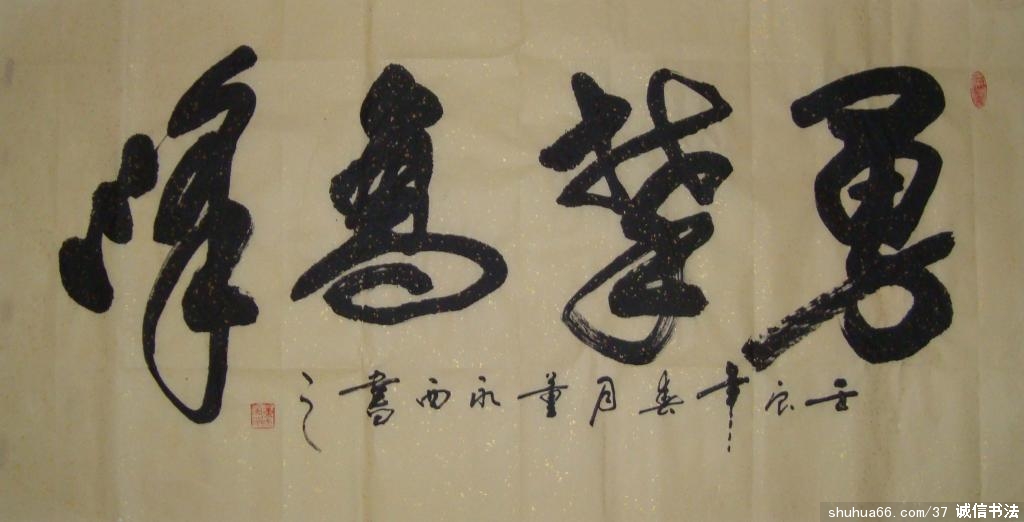 勇攀高峰
壬辰年春月董永西書之
shuhua66.com/37 诚信书法